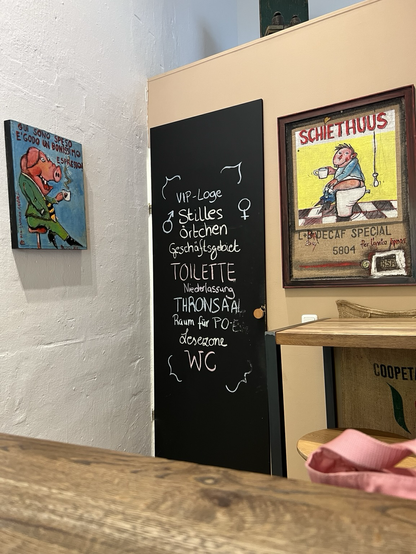 QUI SONO SPESO
E GODO UN BUONISSIMO
ESPRESSO
VIP-Loge
♂ Stilles ♀
Örtchen
Geschäftsgebiet
TOILETTE
Niederlassung
THRONSAAL
Raum für PO-E
Lesezone
WC
SCHIETHUUS
DECAF SPECIAL
5804
COOPETA